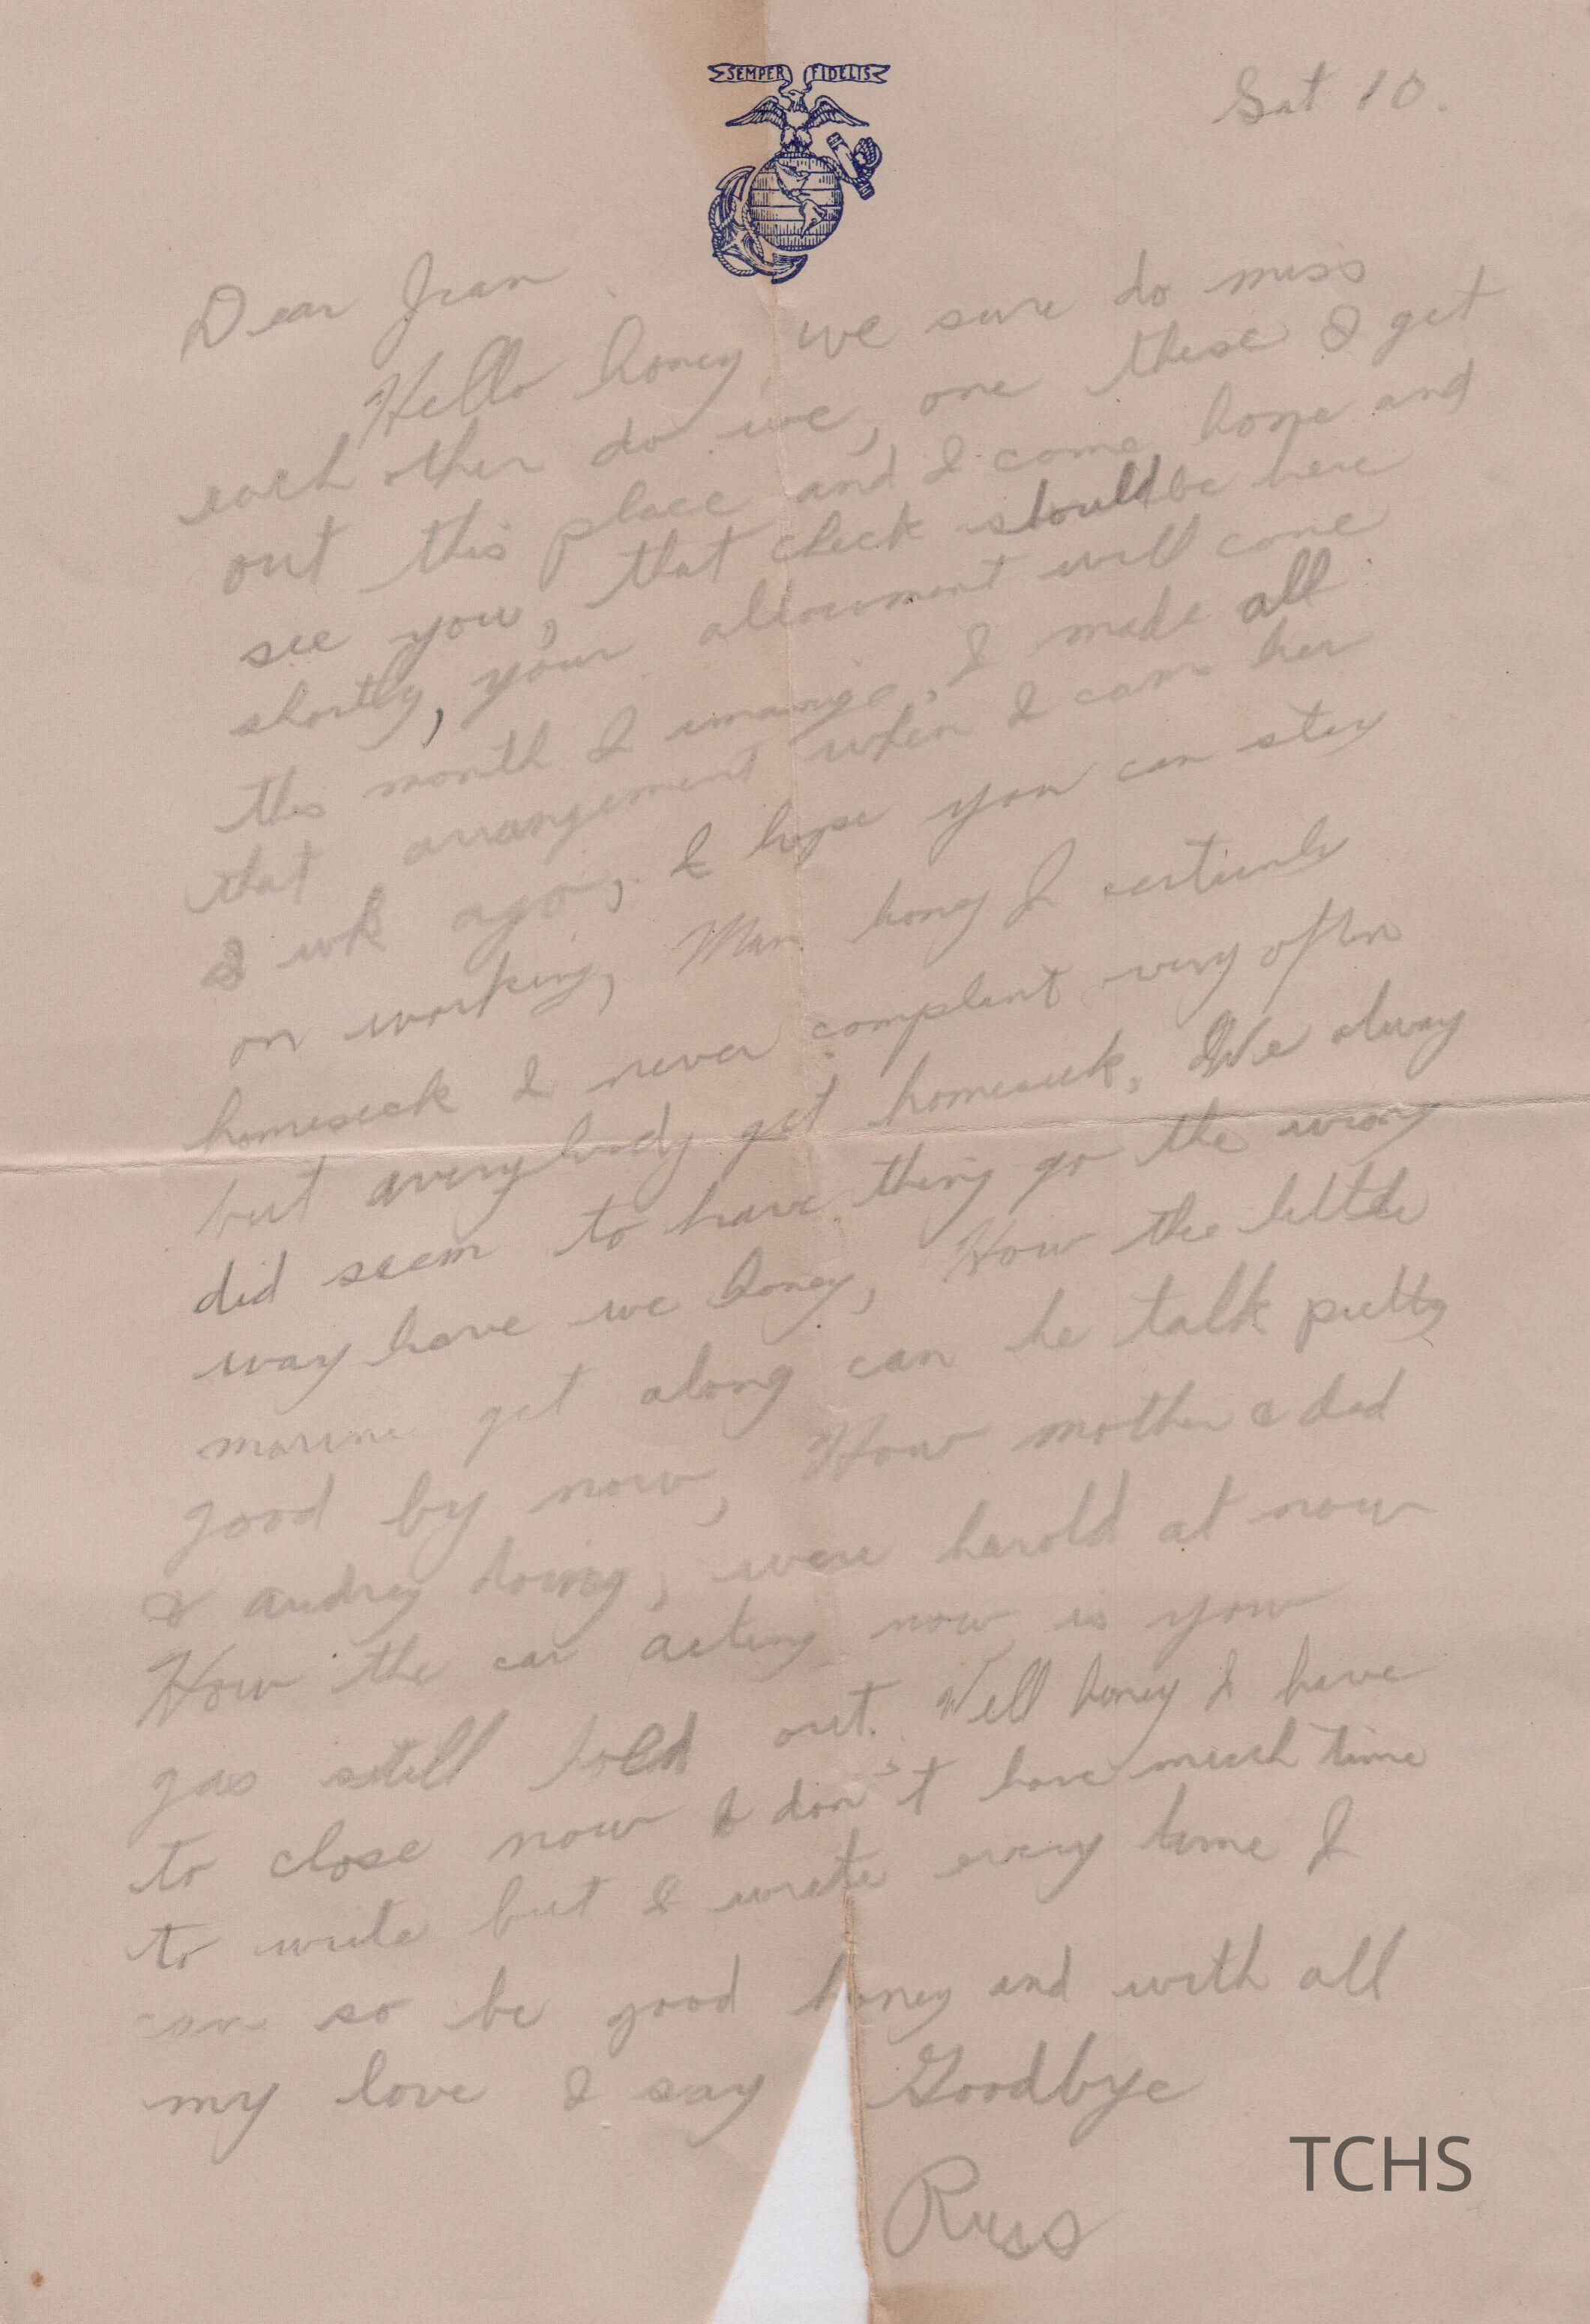 SEMPER FIDELIS
Sat 10.
Dear Jean
Hello honey we sure do miss
each other do we, one these I get
out this place and I come home and
see you, that check should be here
shortly, your allowment will come
this month I imanige, I made all
that arrangement when I came her
I wk ago, I hope you can stay
on working, Man honey I certainly
homesick I never complent very often
but averybody get homesick, We alway
did seem to have thing go the wrong
way have we honey, How the little
marine get along can he talk pretty
good by now, How mother & dad
& audrey doing, were harold at now
How the car acting now is your
gas still hold out. Well honey I have
to close now I don't have much time
to write but I write every time I
can so be good honey and with all
my love I say Goodbye
Russ
TCHS